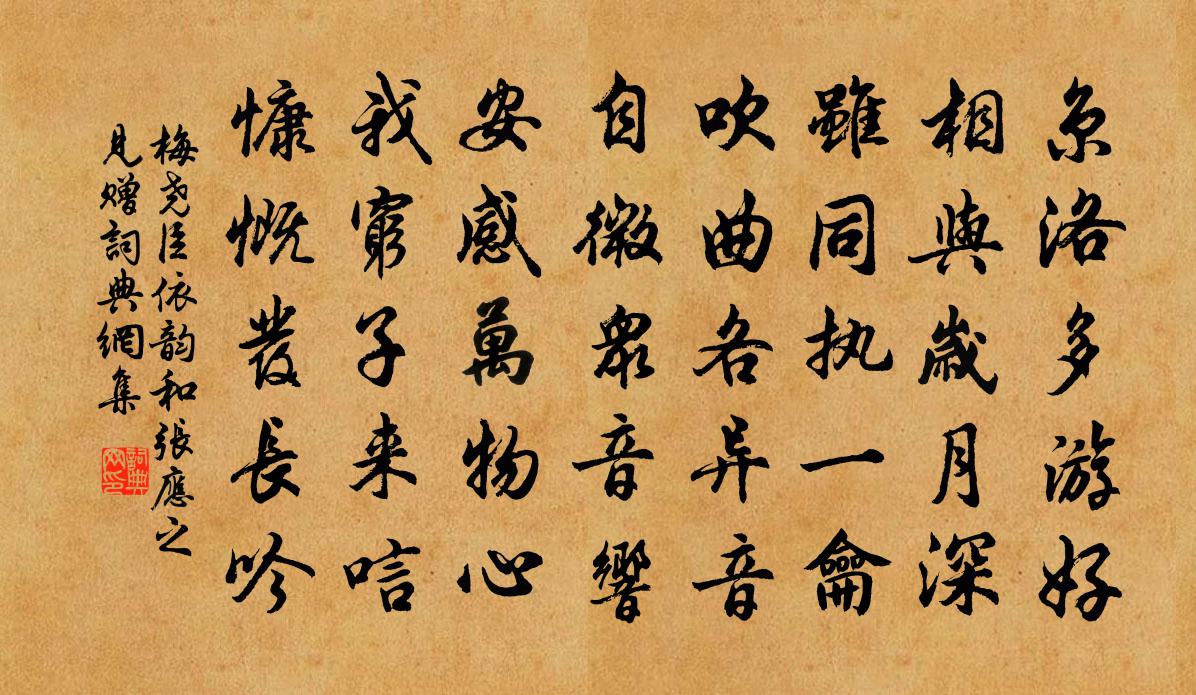 京洛多游好
相與歲月深
雖同执一龠
吹曲各异音
自微眾音響
安感萬物心
我窮子来唁
慷慨發長吟
梅尧臣依韵和張應之
見贈詞典網集
詞典网印